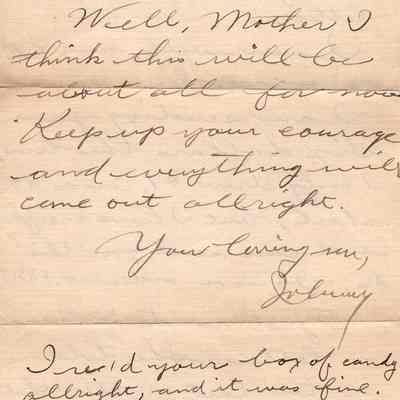 Well, Mother I
think this will be
about all for now
Keep up your courage
and everything will
come out allright.
Your loving son,
Johnny
I rec'd your box of candy
allright, and it was fine.